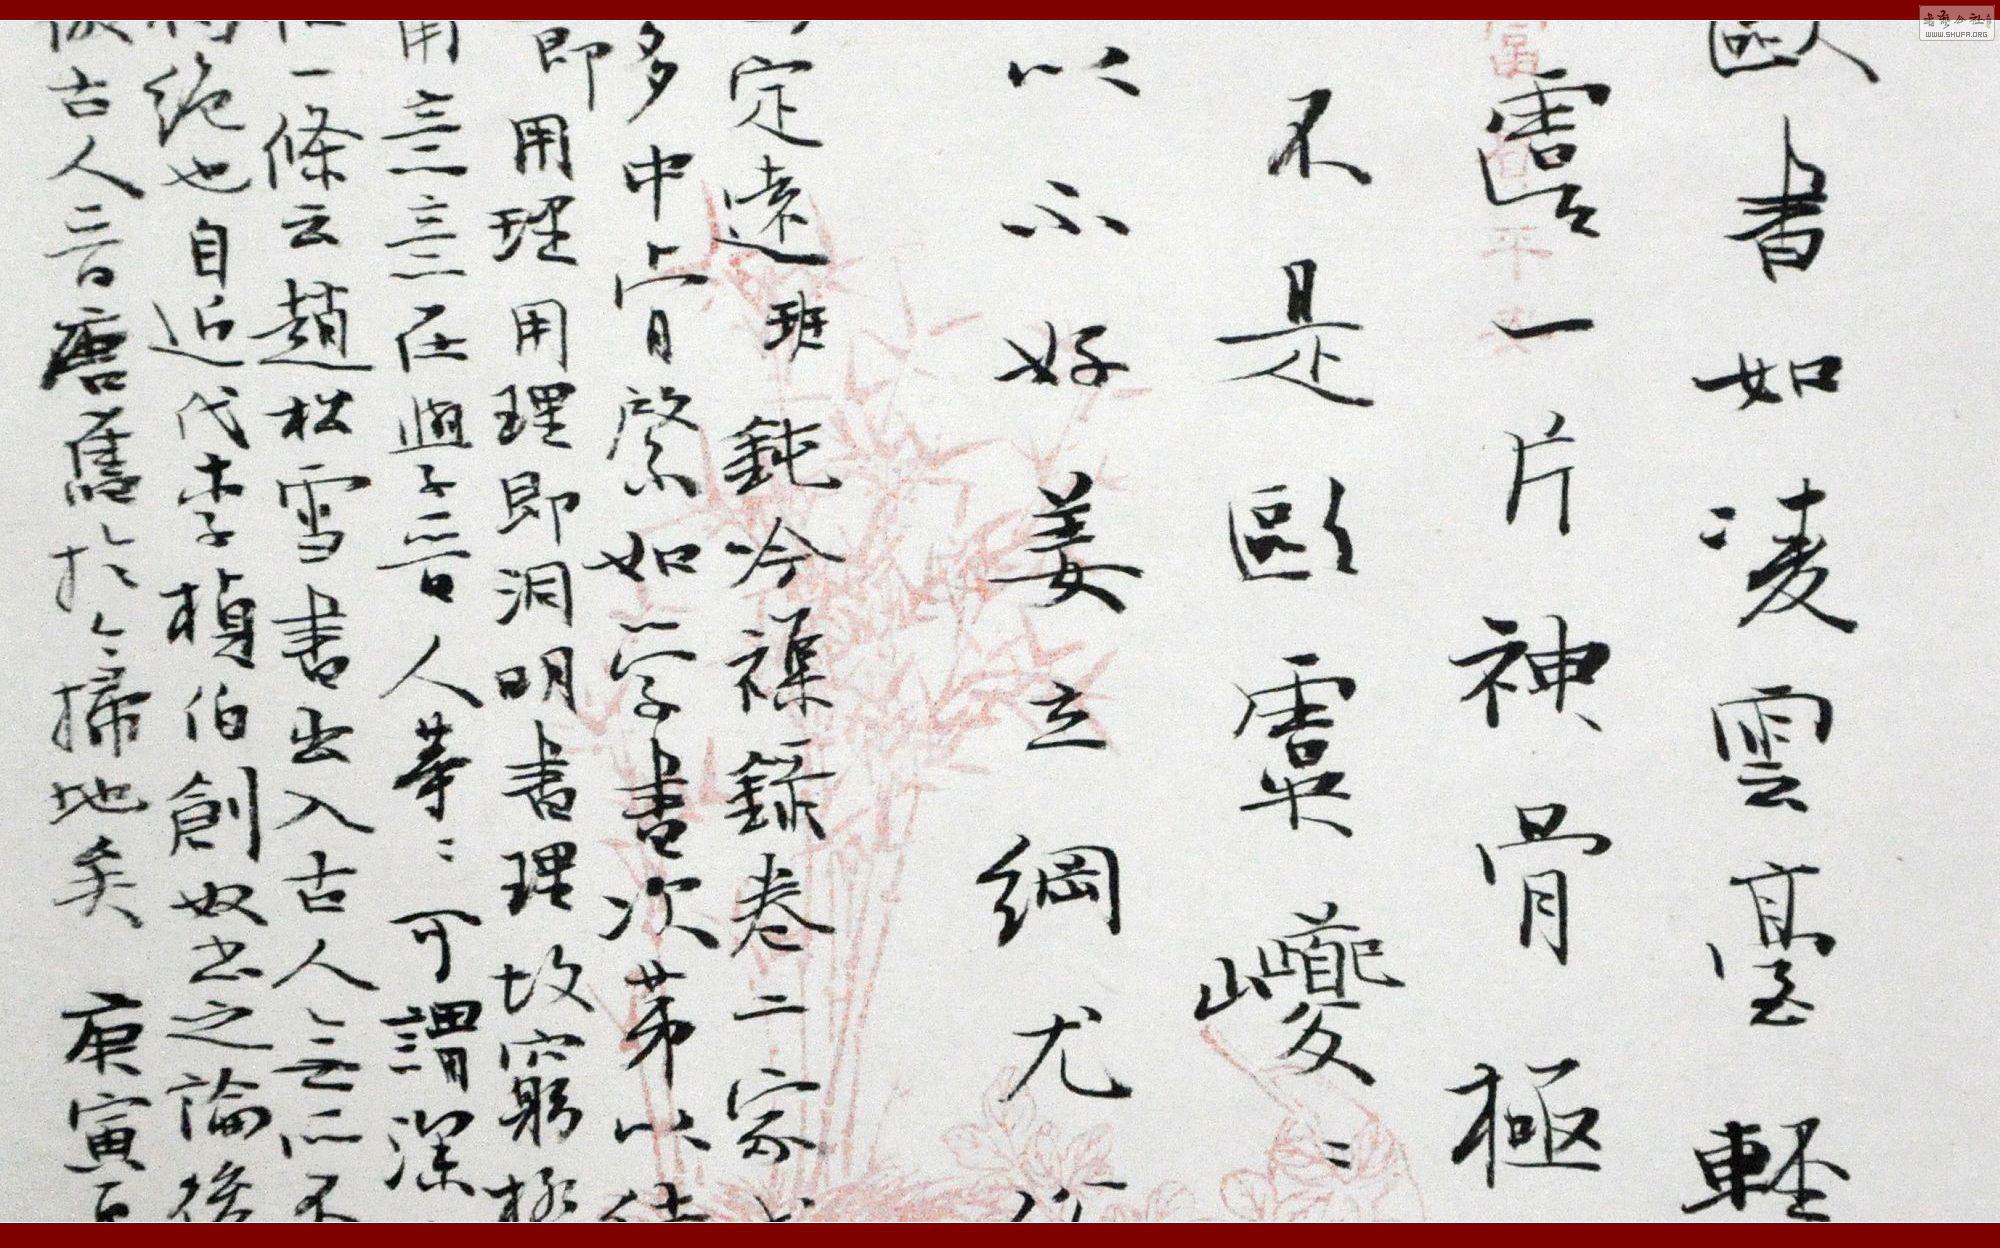 歐書如凌雲臺輕
靈一片神骨極
不是歐虞夔〻
以不好姜立綱尤
定遠班 鈍吟雜錄卷二家
多中肯綮如字書次第以
即用理用理即洞明書理故窮極
用在與言人等〻可謂深
一條云趙松雪書出入古人無所不
絕也自近代李楨伯創奴書之論後
古人言唐舊於〻掃地矣 庚寅
富平
WWW.SHUFA.ORG